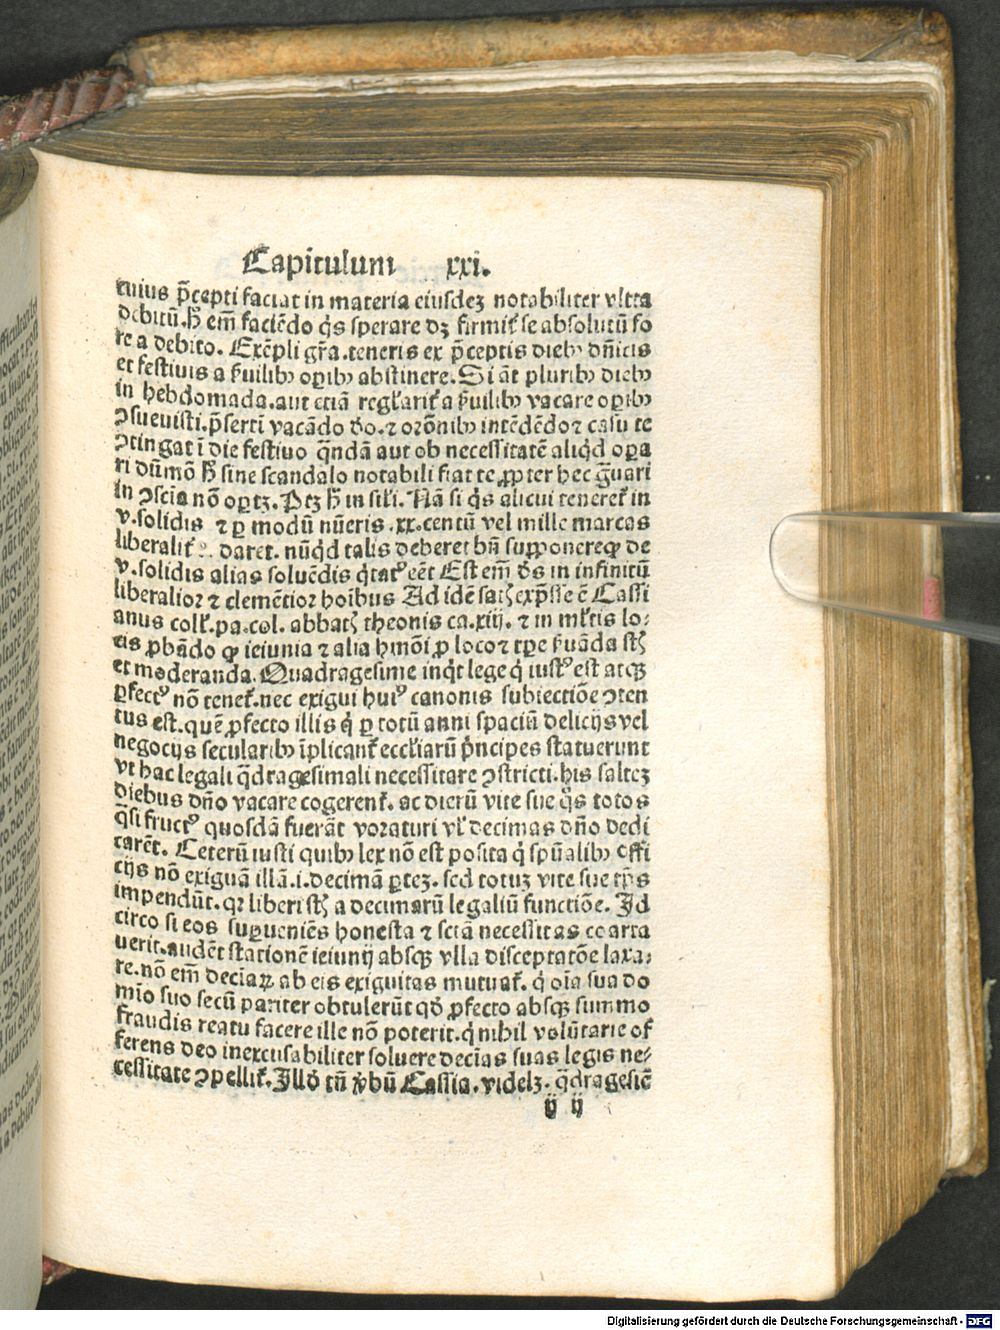 Capitulum xxi.
cuius p̄cepti faciat in materia eiusdeꝫ notabiliter vltra
debitū. H̄ em̄ faciēdo q̄s sperare dꝫ firmit̓ se absolutū fo
re a debito. Exēpli gr̄a. teneris ex p̄ceptis dieb⁹ dn̄icis
et festiuis a s̓uilib⁹ oꝑib⁹ abstinere. Si āt plurib⁹ dieb⁹
in hebdomada. aut etiā regl̓arit̓ a s̓uilib⁹ vacare oꝑib⁹
ꝯsueuisti. p̄serti vacādo deo. ⁊ or̄onib⁹ intēdēdo ⁊ casu te
ꝯtingat ī die festiuo q̄ndā aut ob necessitatē aliqd̓ oꝑa
ri dūmō h̄ sine scandalo notabili fiat te ꝓpter hec g̓uari
in ꝯscīa nō oꝑtꝫ. Ptꝫ h̄ in sil̓i. Nā si q̄s alicui teneret̓ in
v. solidis ⁊ ꝑ modū nūeris .xx. centū vel mille marcas
liberalit̓ daret. nūqd̓ talis deberet bn̄ supponere ꝙ de
v. solidis alias soluēdis q̓tat⁹ eēt Est em̄ de⁹ in infinitū
liberalior ⁊ clemētior hoībus Ad idē satꝭ exp̄sse ē Cassi
anus coll̓. pa. col. abbatꝭ theonis ca. xiij. ⁊ in ml̓tis lo⸗
cis ꝓbādo ꝙ ieiunia ⁊ alia hmōi ꝓ loco ⁊ tꝑe s̓uāda st̄
et moderanda. Quadragesime inq̓t lege q̓ iust⁹ est atqꝫ
ꝑfect⁹ nō tenet̓. nec exigui hui⁹ canonis subiectiōe ꝯten
tus est. quē ꝓfecto illis q̓ ꝑ totū anni spaciū delicijs vel
negocijs secularib⁹ īplicant̓ eccl̓iarū p̓ncipes statuerunt
vt hac legali q̄dragesimali necessitate ꝯstricti. his salteꝫ
diebus dn̄o vacare cogerent̓. ac dierū vite sue q̄s totos
q̄si fruct⁹ quosdā fuerāt voraturi vl̓ decimas dn̄o dedi
carēt. Ceterū iusti quib⁹ lex nō est posita q̓ spūalib⁹ offi
cijs nō exiguā illā .i. decimā ꝑteꝫ. sed totuꝫ vite sue tp̄s
impendūt. qꝛ liberi st̄ a decimarū legaliū functiōe. Id
circo si eos suꝑueniēs honesta ⁊ sctā necessitas coarta
uerit. audēt stationē ieiunij absqꝫ vlla disceptatōe laxa⸗
re. nō em̄ decīaꝝ ab eis exiguitas mutuat̓. q̓ oīa sua do
mīo suo secū pariter obtulerūt qd̓ ꝓfecto absqꝫ summo
fraudis reatu facere ille nō poterit. q̓ nihil volūtarie of
ferens deo inexcusabiliter soluere decīas suas legis ne⸗
cessitate ꝯpellit̓. Illd̓ tn̄ v̓bū Cassia. videlꝫ. q̄dragesiē
ÿ ij
Digitalisierung gefördert durch die Deutsche Forschungsgemeinschaft - DFG